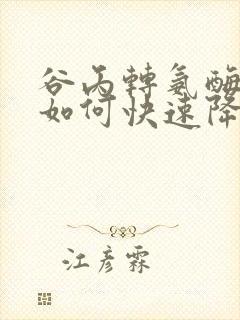 谷丙轉氨酶
如何快速降
江彦霖